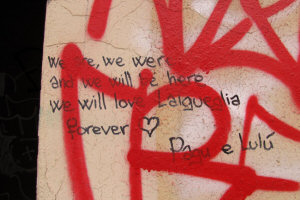 We are, we were
and we will be here
we will love Laigueglia
Forever ♡
Pagu e Lulú